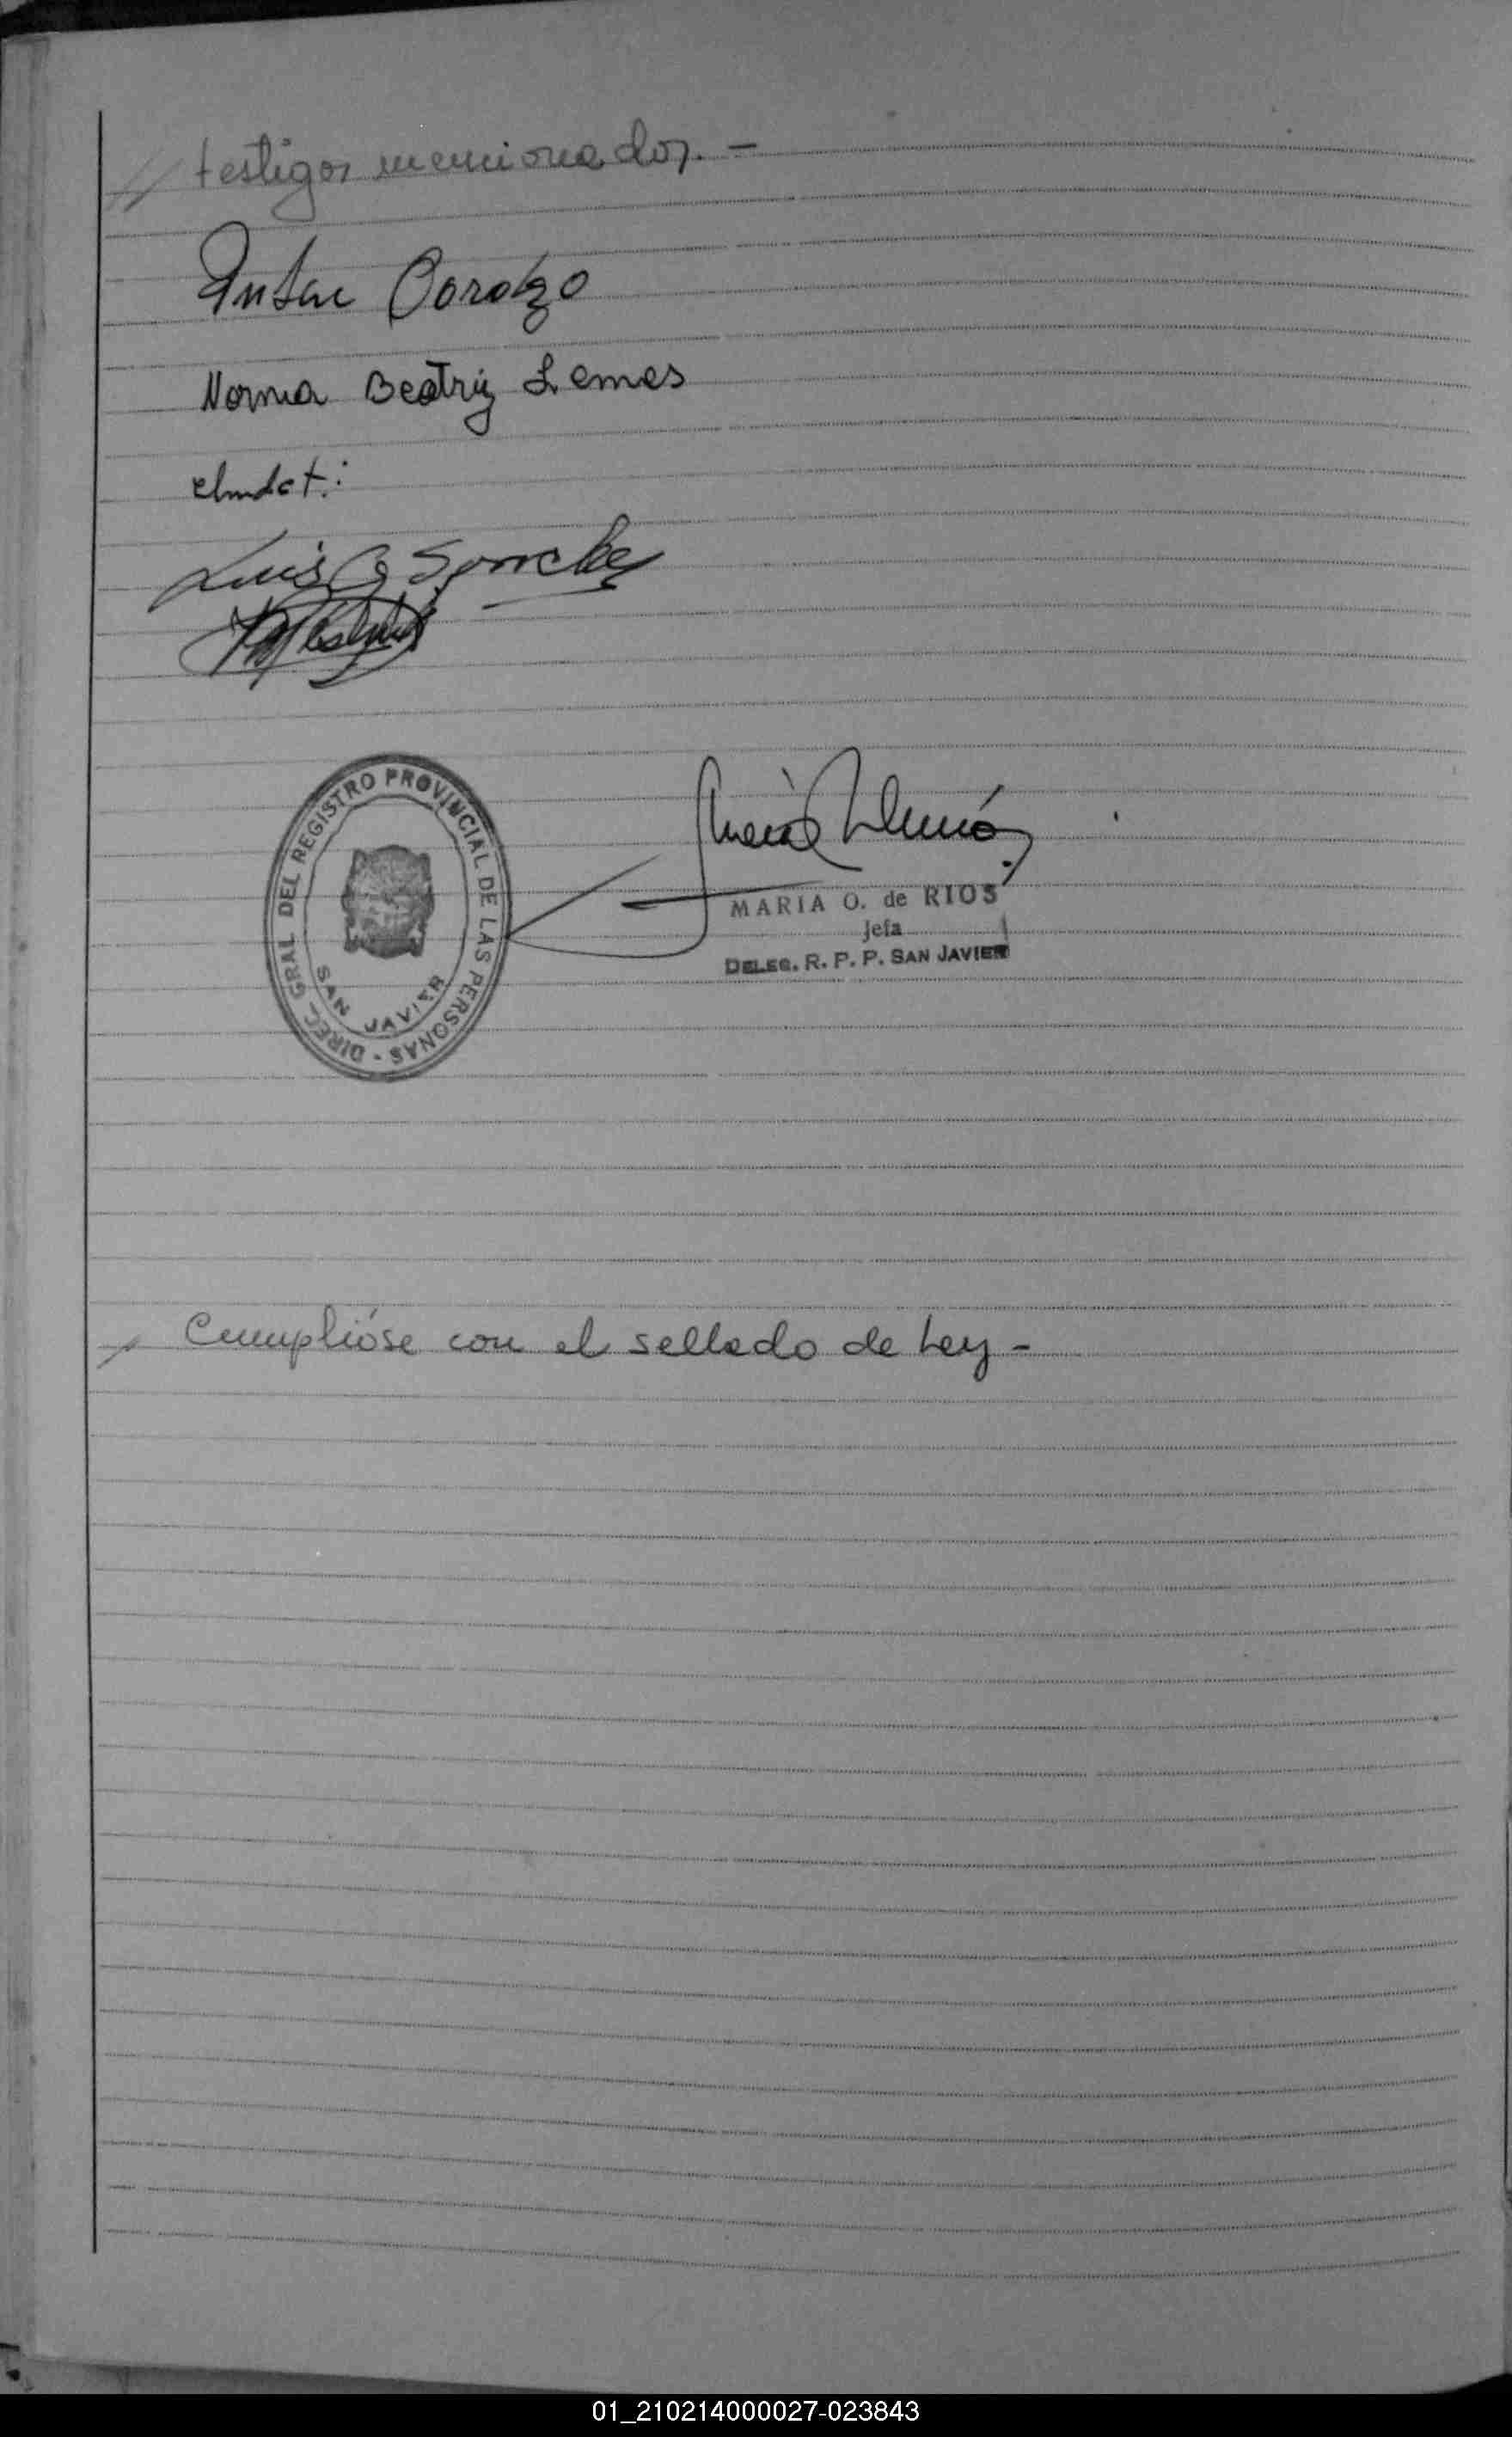 // testigos mencionados. -
Norma Beatriz Lemes
Luis Sanchez
DIREC. GRAL DEL REGISTRO PROVINCIAL DE LAS PERSONAS -
SAN JAVIER
MARIA O. de RIOS
Jefa
DELEG. R. P. P. SAN JAVIER
/ Cumplióse con el sellado de Ley -
01_210214000027-023843